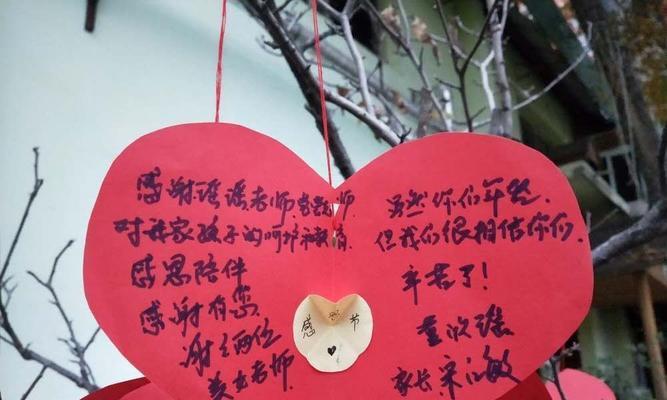 感谢瑶瑶老师 老师
对我家孩子的呵护和教育
感恩陪伴
感谢有您
谢谢两位
美女老师
感 节
虽然你们年轻.
但我们很相信你们.
辛苦了!
童欣瑶
家长:宋 敏